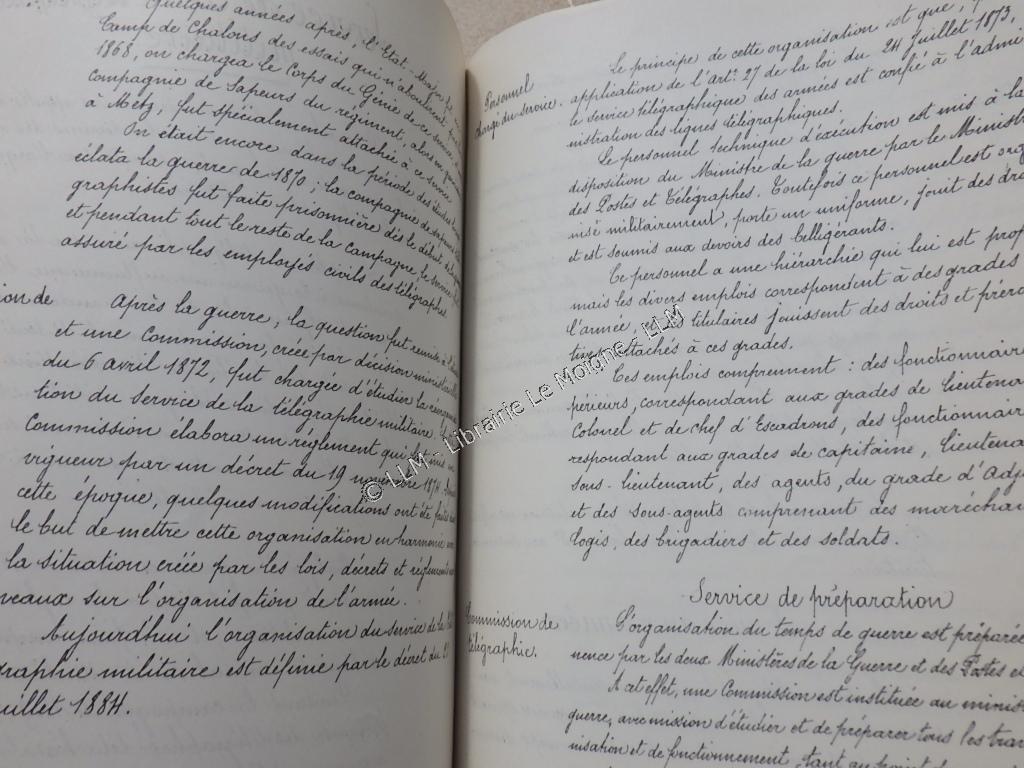 Quelques années après, l'Etat-Major fit
Camp de Chalons des essais qui n'aboulirent
1868, on chargea le Corps du Génie de ce service
compagnie de Sapeurs du régiment, alors en
à Metz, fut spécialement attachée à ce service.
On était encore dans la période des études
éclata la guerre de 1870 ; la compagnie de
graphistes fut faite prisonnière dès le début
et pendant tout le reste de la campagne, le service
assuré par les employés civils des télégraphes.
ion de
Après la guerre, la question fut remise à l'
et une Commission, créée par décision ministérielle
du 6 avril 1872, fut chargée d'étudier la
tion du service de la télégraphie militaire.
Commission élabora un réglement qui fut mis en
vigueur par un décret du 19 novembre 1874.
cette époque, quelques modifications ont été
le but de mettre cette organisation en harmonie avec
la situation créée par les lois, décrets et réglements
veaux sur l'organisation de l'armée.
Aujourd'hui l'organisation du service de la
graphie militaire est définie par le décret du
uillet 1884.
Personnel
chargé du service.
Le principe de cette organisation est que,
application de l'art. 27 de la loi du 24 Juillet 1873,
le service télégraphique des armées est confié à l'admi
nistration des lignes télégraphiques.
Le personnel technique d'exécution est mis à la
disposition du Ministre de la guerre par le Ministre
des Postes et Télégraphes. Toutefois ce personnel est orga
nisé militairement, porte un uniforme, jouit des droi
et est soumis aux devoirs des belligérants.
Ce personnel a une hiérarchie qui lui est prop
mais les divers emplois correspondent à des grades
l'armée, et les titulaires jouissent des droits et préro
tives attachés à ces grades.
Ces emplois comprennent : des fonctionnaire
périeurs, correspondant aux grades de Lieutena
Colonel et de chef d'Escadrons, des fonctionnair
respondant aux grades de capitaine, lieutena
sous-lieutenant, des agents, du grade d'Adj
et des sous-agents comprenant des maréchau
logis, des brigadiers et des soldats.
Service de préparation
Commission de
télégraphie.
L'organisation du temps de guerre est préparée
nence par les deux Ministères de la Guerre et des Postes et
A cet effet, une Commission est instituée au minist
guerre, avec mission d'étudier et de préparer tous les trav
nisation et de fonctionnement, tant au point de
© LLM - Librairie Le Moigne - LLM